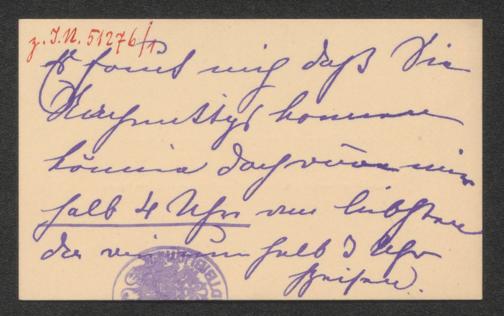 z. I.N. 51276/1
Es freut mich daß Sie
Nachmittgs kommen
können doch wäre mir
halb 4 Uhr am liebsten
da wir um halb 3 Uhr
speisen.